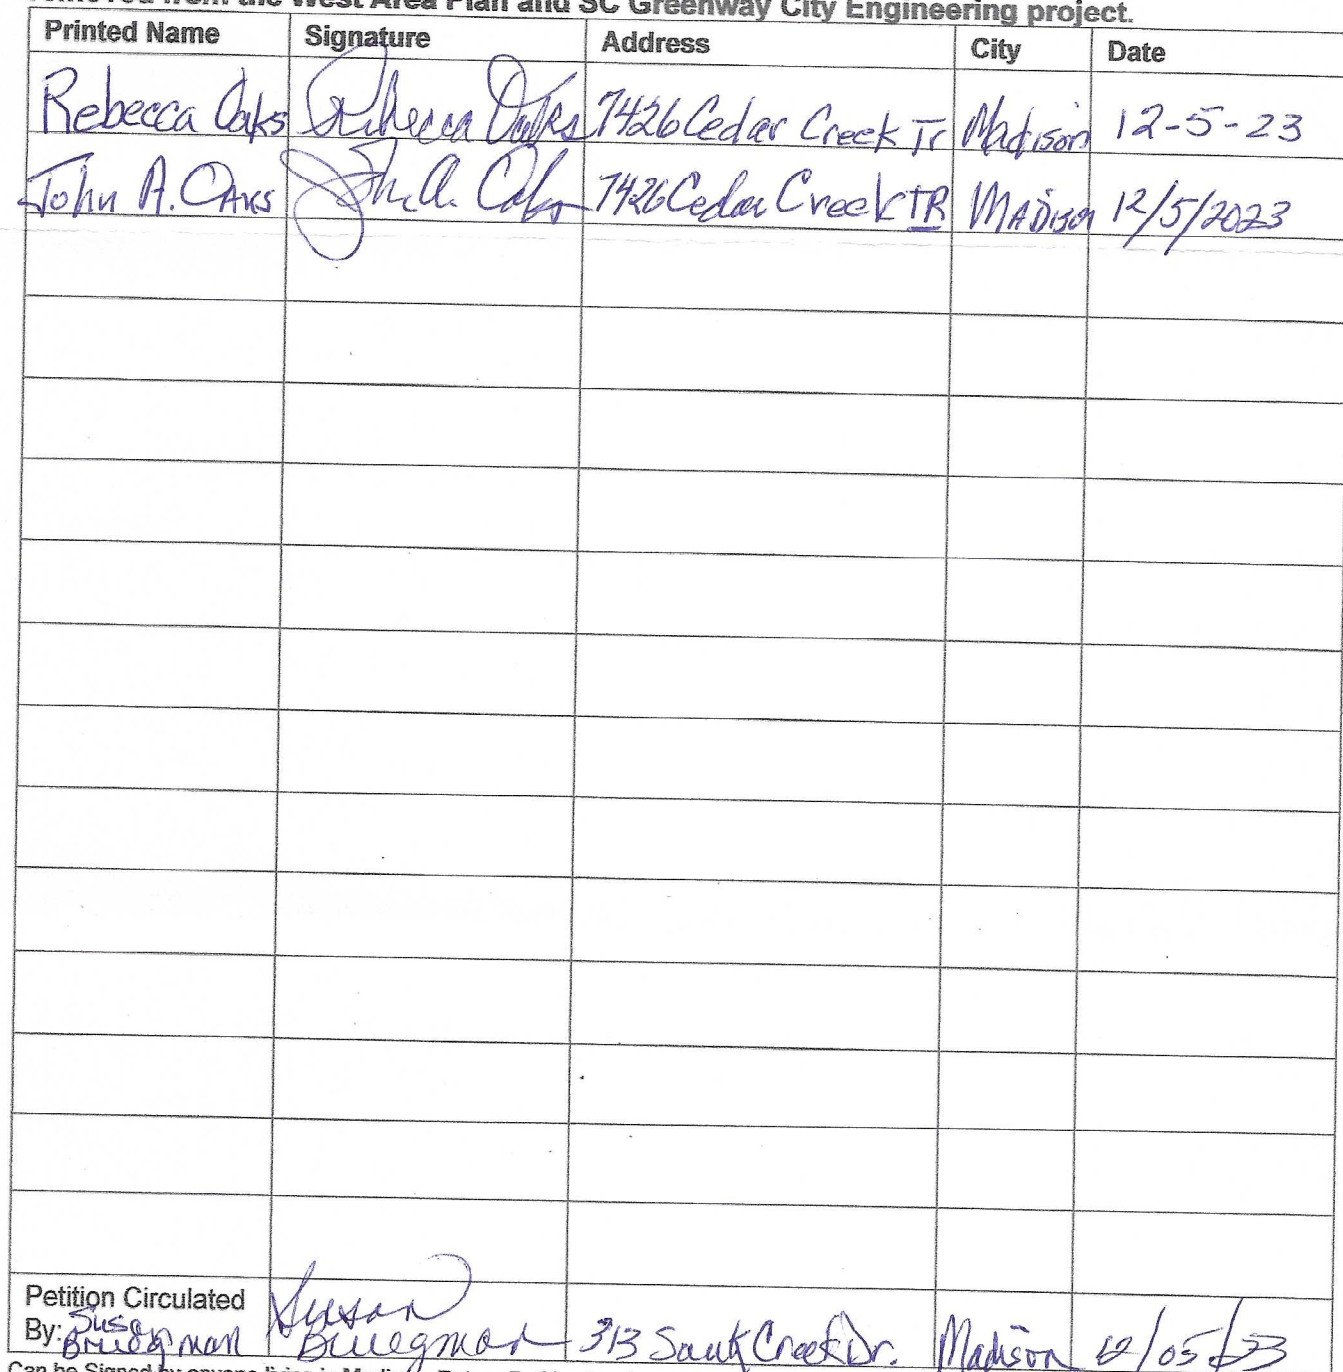 removed from the West Area Plan and SC Greenway City Engineering project.
Printed Name Signature Address City Date
Rebecca Oaks Rebecca Oaks 7426 Cedar Creek Tr Madison 12-5-23
John A. Oaks John A. Oaks 7426 Cedar Creek TR Madison 12/5/2023
Petition Circulated
By: Susan Bruegman Susan Bruegman 313 Sauk Creek Dr. Madison 12/05/23
Can be Signed by anyone living in